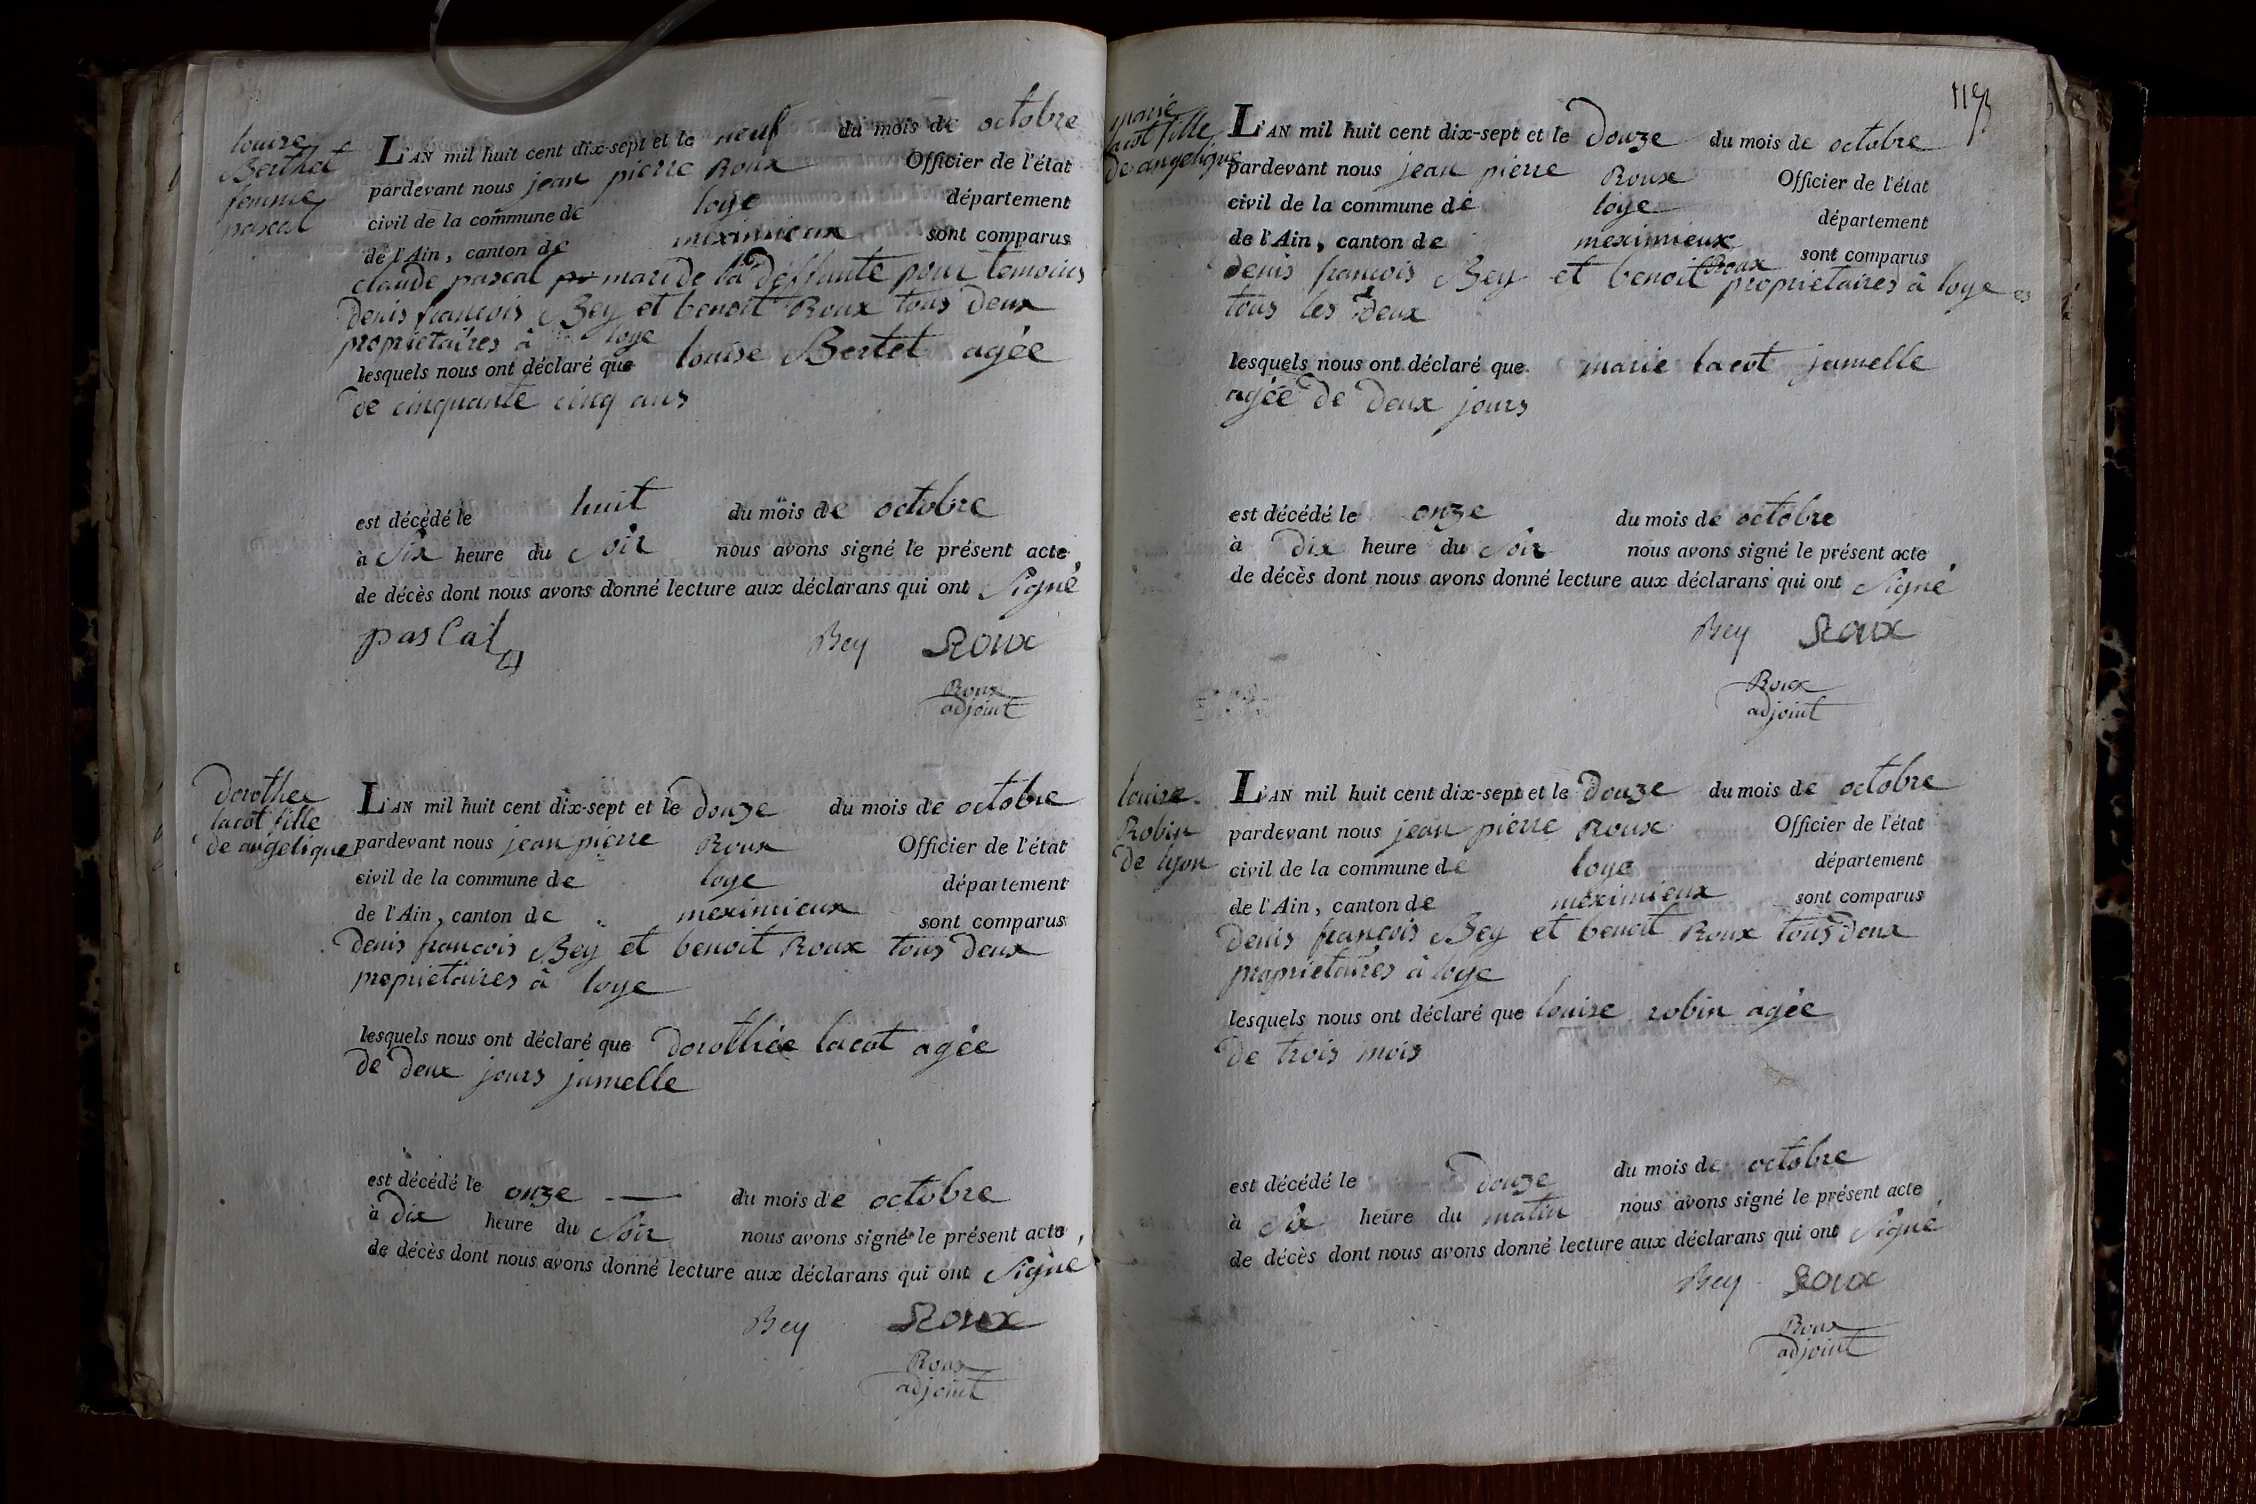 louise
Berthet
femme
pascal
L'AN mil huit cent dix-sept et le neuf du mois de octobre
pardevant nous jean pierre Roux Officier de l'état
civil de la commune de loye département
de l'Ain, canton de meximieux sont comparus
claude pascal mari de la deffunte pour temoins
denis francois Bey et benoit Roux tous deux
proprietaires à loye
lesquels nous ont déclaré que louise Bertet agée
de cinquante cinq ans
est décédé le huit du mois de octobre
à Six heure du Soir nous avons signé le présent acte
de décès dont nous avons donné lecture aux déclarans qui ont Signé
pascal Bey Roux
Roux
adjoint
dorothee
lacot fille
de angelique
L'AN mil huit cent dix-sept et le douze du mois de octobre
pardevant nous jean pierre Roux Officier de l'état
civil de la commune de loye département
de l'Ain, canton de meximieux sont comparus
denis francois Bey et benoit Roux tous deux
proprietaires à loye
lesquels nous ont déclaré que dorothée lacot agée
de deux jours jumelle
est décédé le onze du mois de octobre
à dix heure du Soir nous avons signé le présent acte
de décès dont nous avons donné lecture aux déclarans qui ont Signé
Bey Roux
Roux
adjoint
marie
lacot fille
de angelique
L'AN mil huit cent dix-sept et le douze du mois de octobre
pardevant nous jean pierre Roux Officier de l'état
civil de la commune de loye département
de l'Ain, canton de meximieux sont comparus
denis francois Bey et benoit Roux proprietaires à loye
tous les deux
lesquels nous ont déclaré que marie lacot jumelle
agée de deux jours
est décédé le onze du mois de octobre
à dix heure du Soir nous avons signé le présent acte
de décès dont nous avons donné lecture aux déclarans qui ont Signé
Bey Roux
Roux
adjoint
louise
Robin
de lyon
L'AN mil huit cent dix-sept et le douze du mois de octobre
pardevant nous jean pierre Roux Officier de l'état
civil de la commune de loye département
de l'Ain, canton de meximieux sont comparus
denis francois Bey et benoit Roux tous deux
proprietaires à loye
lesquels nous ont déclaré que louise robin agée
de trois mois
est décédé le douze du mois de octobre
à Six heure du matin nous avons signé le présent acte
de décès dont nous avons donné lecture aux déclarans qui ont Signé
Bey Roux
Roux
adjoint